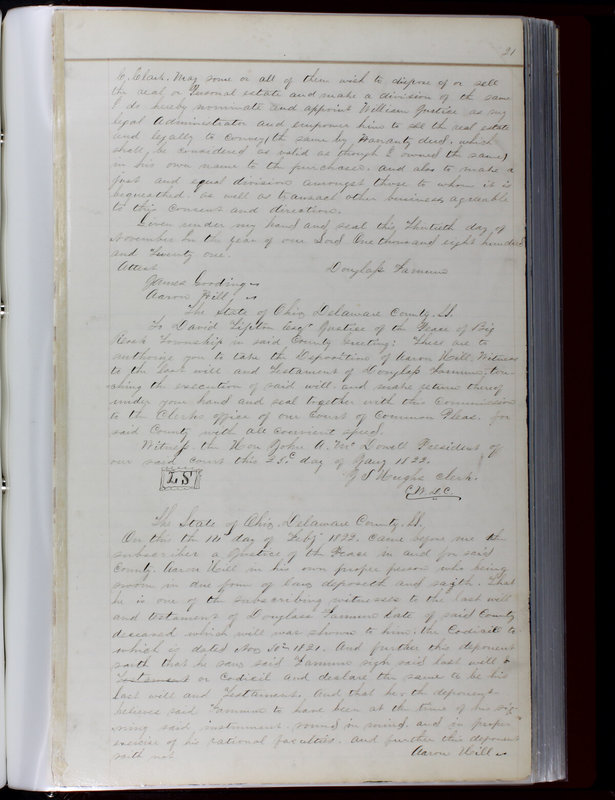 21
C. Clark. May some or all of them wish to dispose of or sell
the real or Personal estate and make a division of the same
I do hereby nominate and appoint William Justice as my
legal Administrator and empower him to sell the real estate
and legally to convey the same by Warranty deed, which
shall be considered as valid as though I owned the same
in his own name to the purchaser. and also to make a
just and equal division amongst those to whom it is
bequeathed. as well as transact other business agreeable
to this consent and direction.
Given under my hand and seal this Thirtieth day of
November In the year of our Lord One thousand eight hundred
and Twenty one.
Attest Douglass
James Gooding
Aaron Hill,
The State of Ohio, Delaware County, SS.
To David Tipton Esqr Justice of the Peace of Big
Rock Township in said County Greeting: These are to
authorize you to take the Deposition of Aaron Hill, Witness
to the Last will and Testament of Douglass touching
ching the execution of said will. and make return thereof
under your hand and seal together with this Commission
to the Clerks office of our Court of Common Pleas. for
said County with all convenient speed.
Witness the Hon John A. Mc Dowell President of
our said court this day of Jany 1822.
LS
Hughs Clerk.
The State of Ohio, Delaware County, SS,
On this the day of Feby 1822. Came before me the
subscriber a Justice of the Peace in and for said
County. Aaron Hill in his own proper person who being
sworn in due form of law deposeth and sayth. That
he is one of the subscribing witnesses to the last will
and testament of Douglass late of said County
deceased which will was shown to him; the Codicil to
which is dated Nov 30th 1821. And further this deponent
saith that he saw said sign said last will &
Testament or Codicil and declare the same to be his
Last will and Testament. And that he the deponent
believes said to have been at the time of his sig-
ning said instrument. sound in mind and in proper
exercise of his rational faculties. And further this deponent
saith not. Aaron Hill